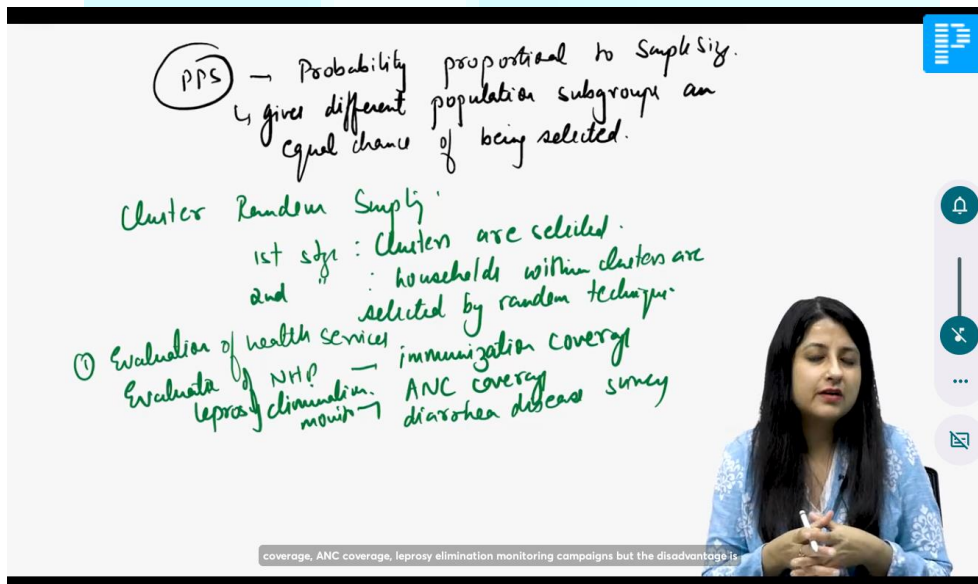 PPS – Probability proportional to Sample Size.
↳ gives different population subgroups an
equal chance of being selected.
Cluster Random
1st stge : Clusters are selected.
2nd " : households within clusters are
selected by random technique.
① Evaluation of health services
Evaluatn of NHP – immunization coverage
leprosy elimination. ANC coverage
monitr – diarrhea disease survey
coverage, ANC coverage, leprosy elimination monitoring campaigns but the disadvantage is